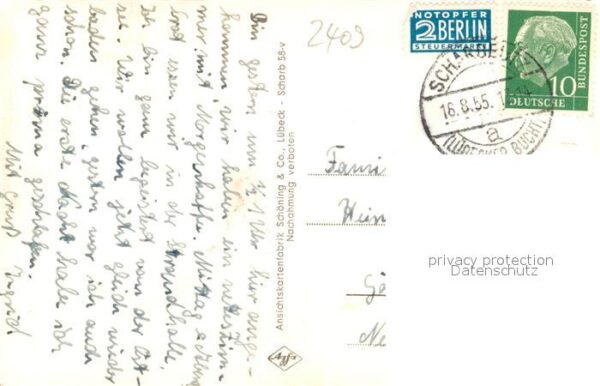 Bin gestern um ½ 1 Uhr hier ange-
kommen, wir haben ein nettes Zim-
mer mit Morgenkaffe. Mittag u. Abend
brot essen wir in der Strandhalle.
Ich bin ganz begeistert von der Ost-
see. Wir wollen jetzt gleich wieder
baden gehen, gestern war ich auch
schon. Die erste Nacht habe ich
ganz prima geschlafen.
Mit Gruß
Ingrid
Ansichtskartenfabrik Schöning & Co., Lübeck - Scharb 58-v
Nachahmung verboten
2409
NOTOPFER
2 BERLIN
STEUERMARKE
DEUTSCHE
BUNDESPOST
10
SCHARBEUTZ
16.8.55.
a
(LÜBECKER BUCHT)
Fami
Hein
Gö
Ne
privacy protection
Datenschutz